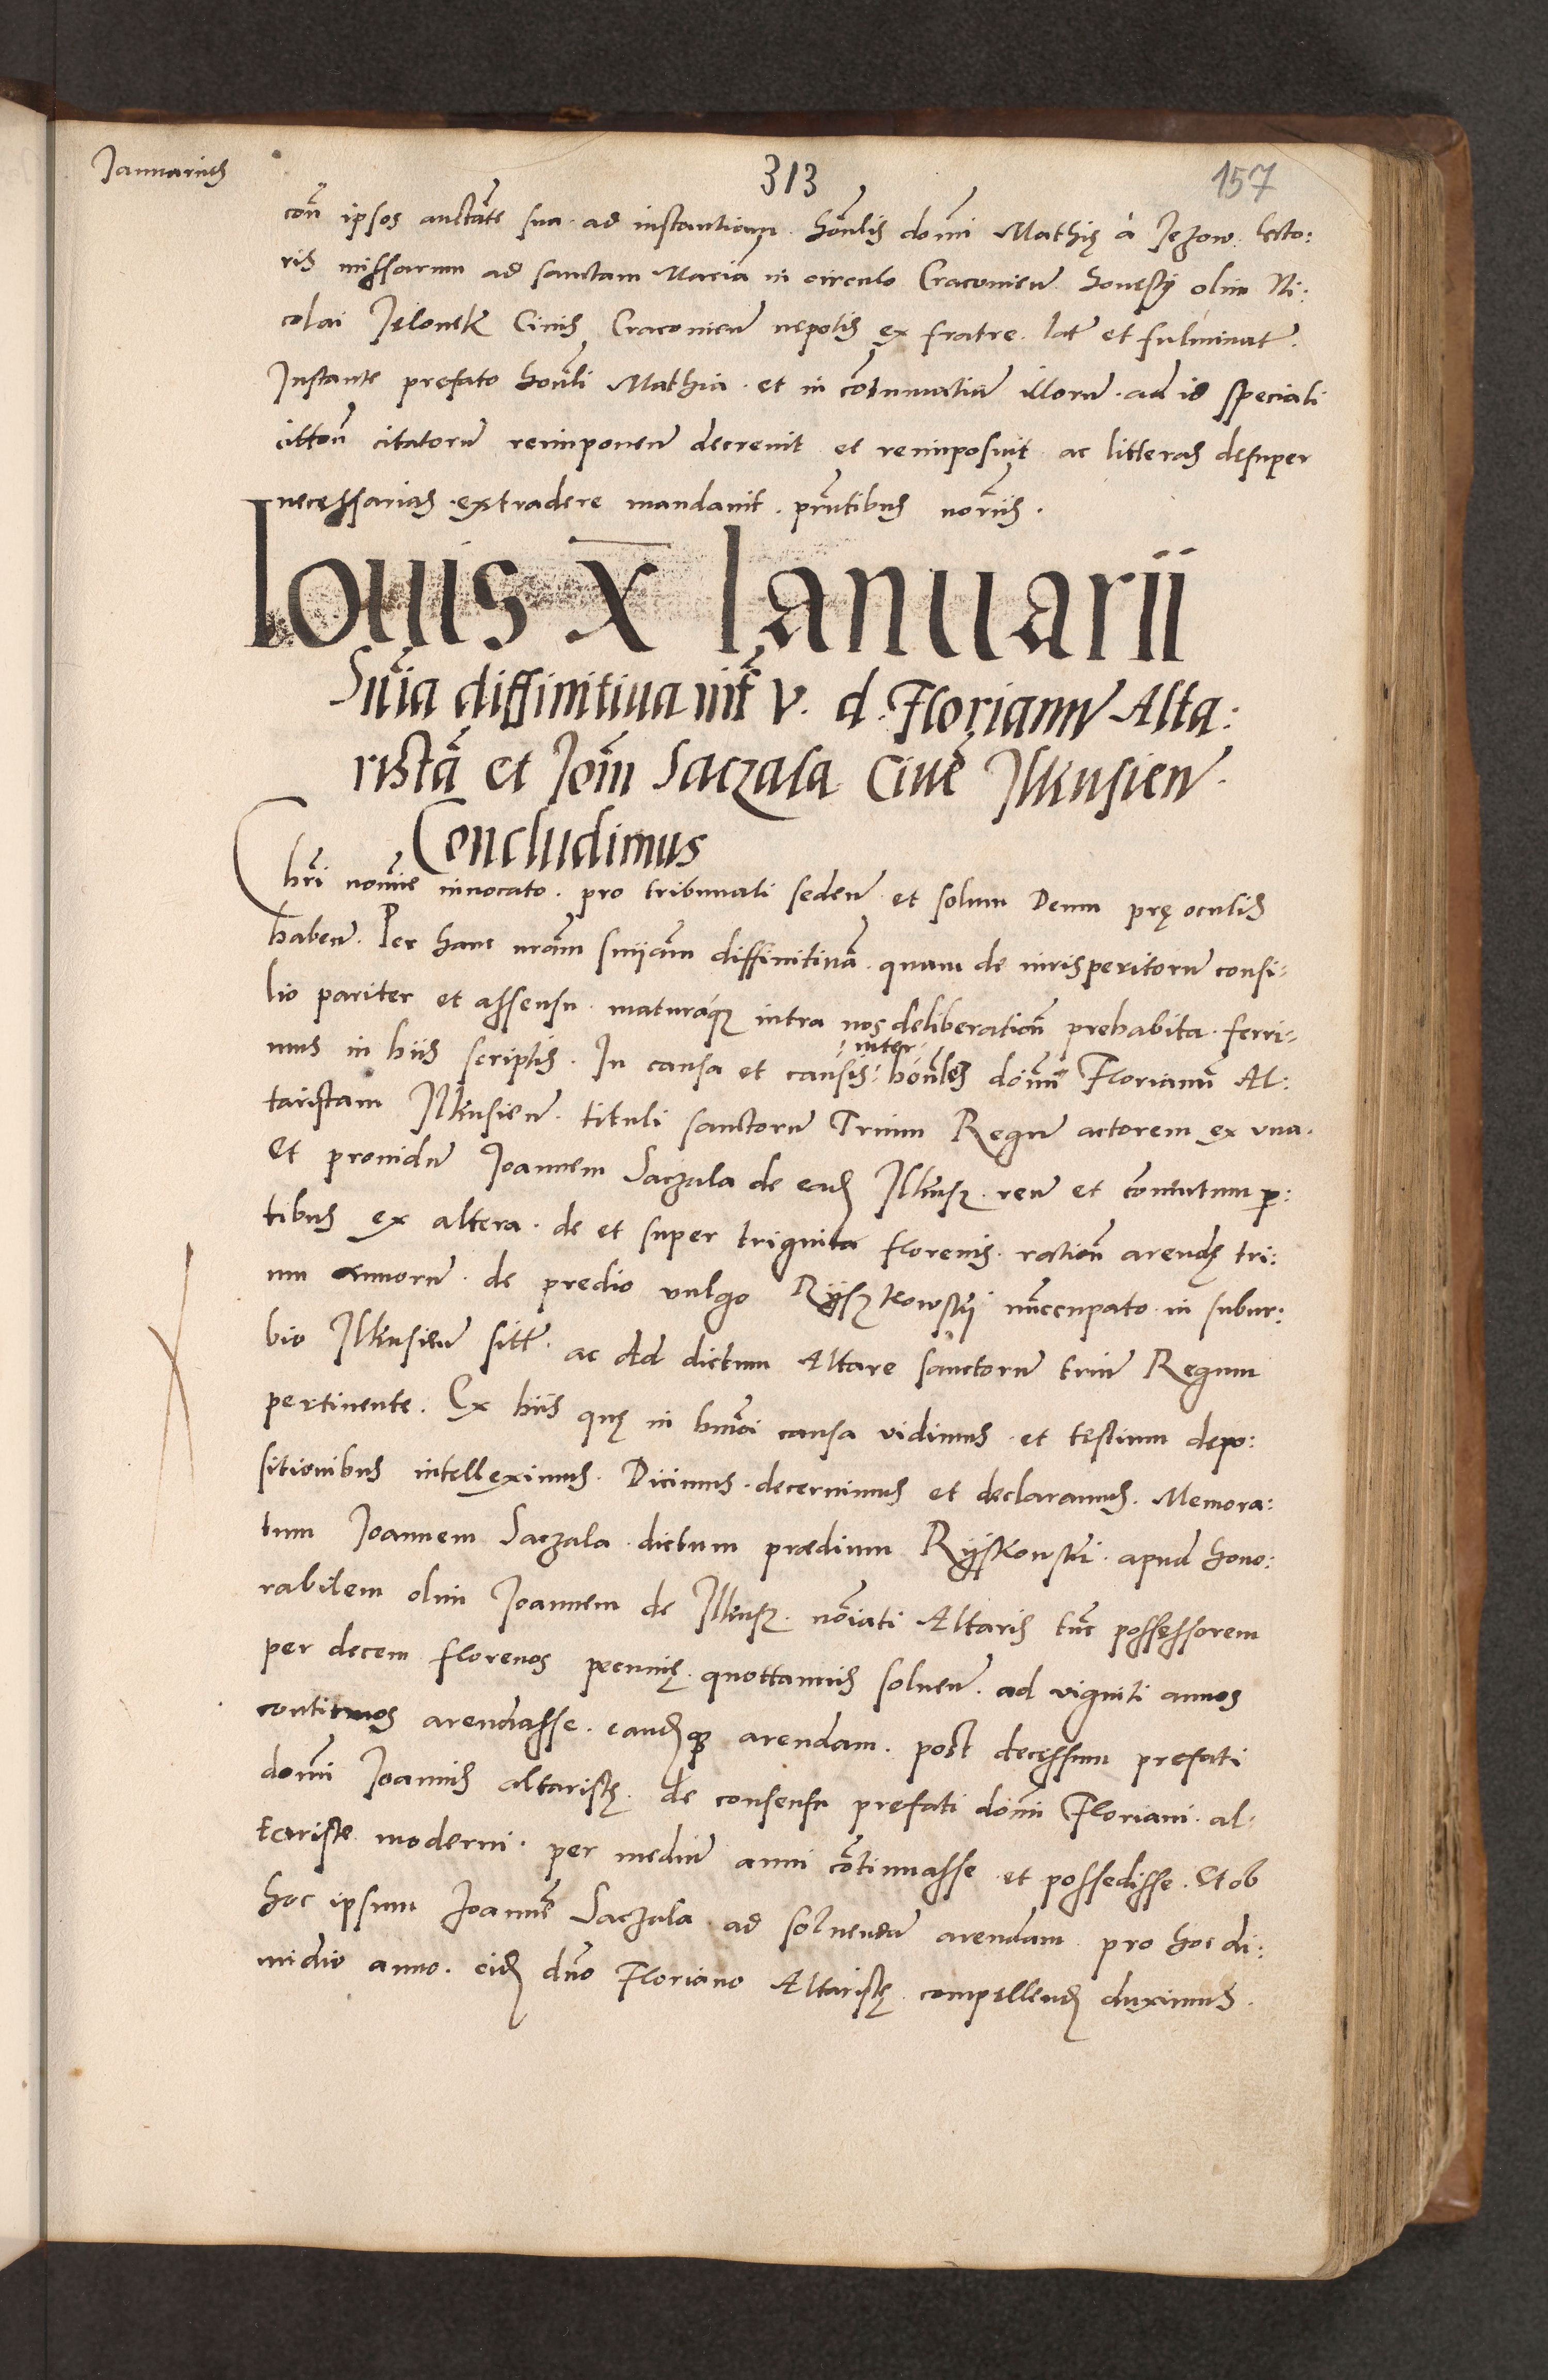 Januarius
313
157
con̄ ipsos auctāte sua ad instantiam honōlis domī Mathię à Jezow lecto:
ris missarum ad sanctam Mariā in circulo Cracovien̄ honesti olim Ni:
colai Jelonek Civis Cracovien̄ nepotis ex fratre lat̄ et fulminat̄.
Instante prefato honōli Mathia et in cōtumatiam illorū ad id speciali
cittōn̄ citatorū reimponen̄ decrevit et reimposuit ac litteras desuper
necessarias extradere mandavit. pn̄tibus noriis.
Iouis X Ianuarii
Sn̄ia diffinitiua int̄ V. d. Florianū Alta:
ristā et Joēm Saczala Ciuē Ilkusien̄.
Concludimus
Chri nomīe invocato. pro tribunali seden̄ et solum Deum prę oculis
haben̄. Per hanc nrām sn̄iam diffinitivā quam de iurisperitorū consi:
lio pariter et assensu maturaq̨ intra nos deliberation̄ prehabita ferri:
mus in hiis scriptis. In causa et causis: honōles domn̄ Florianū Al:
inter
taristam Ilkusien̄ tituli sanctorū Trium Regū actorem ex una.
Et providū Joannem Saczala de ead̄ Ilkusz reū et conventum p̄:
tibus ex altera. de et super triginta florenis ration̄ arendę tri:
um annorū de predio vulgo Rÿszkowskÿ nūccupato in subur:
bio Ilkusien̄ sitt̄ ac Ad dictum Altare sanctorū triū Regum
pertinente. Ex hiis quę in hmōi causa vidimus et testium depo:
sitionibus intelleximus. Dicimus decernimus et declaramus. Memora:
tum Joannem Saczala dictum prædium Rÿskowski apud hono:
rabilem olim Joannem de Ilkusz noiāti Altaris tūc possessorem
per decem florenos pecunię quottannis solven̄ ad viginti annos
continuos arendasse. eandq̨ arendam post decessum prefati
domī Joannis altaristę de consensu prefati domī Floriani al:
tariste moderni per mediū anni cōtinuasse et possedisse. Et ob
hoc ipsum Joannē Saczala ad solvendū arendam pro hoc di:
midio anno. eid̄ dn̄o Floriano Altaristę compellend̄ duximus.